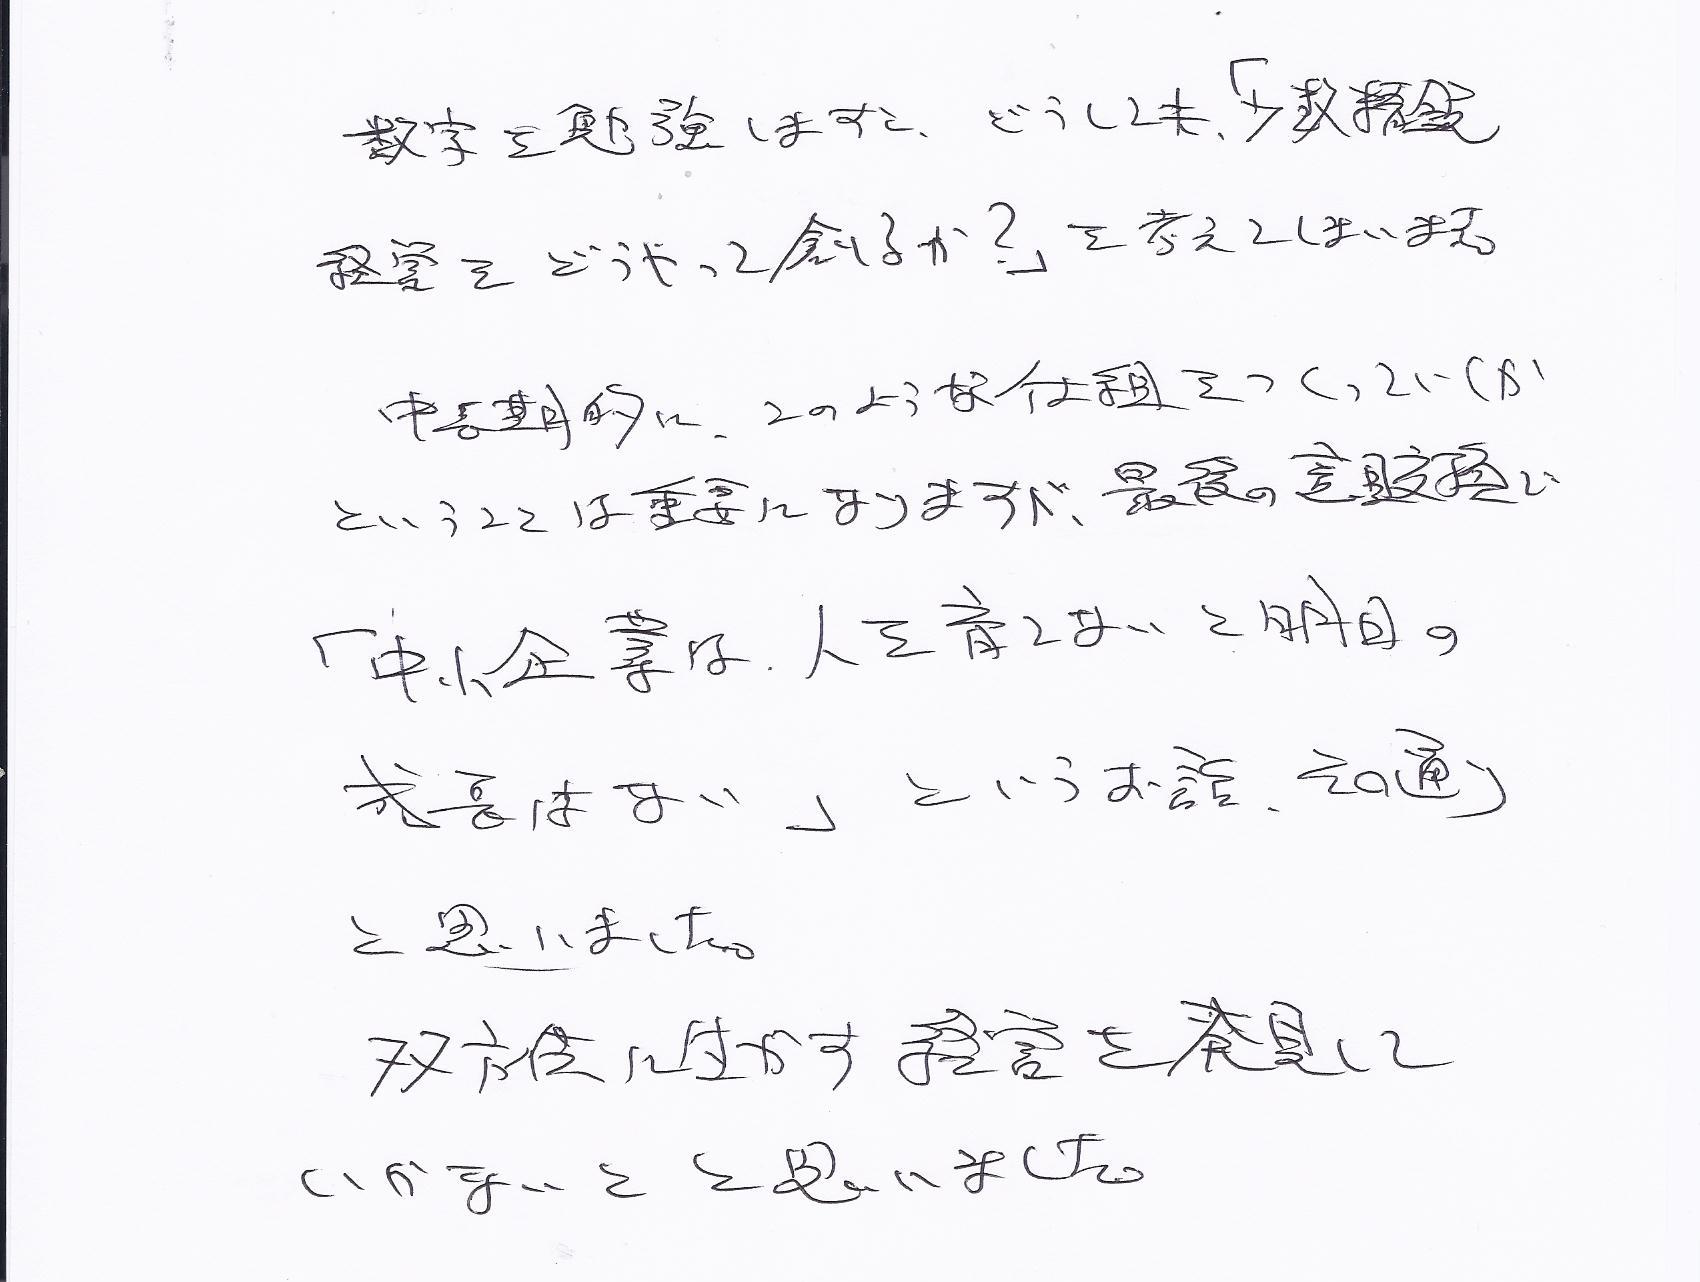 数字を勉強しますと、どうしても、「少数精鋭
経営をどうやって創るか?」を考えてしまいます。
中長期的に、このような仕組をつくっていくか
ということは重要になりますが、最後の質疑で
「中小企業は、人を育てないと明日の
成長はない」というお話、その通り
と思いました。
双方性に生かす経営を発見して
いかないとと思いました。